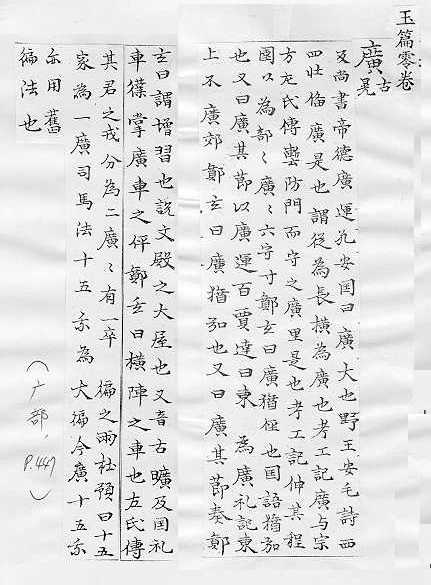 玉篇零卷
廣 古晃
及尚書帝德廣運孔安囯曰廣大也野王安毛詩西
四壯脩廣是也謂從為長橫為廣也考工記廣与宗
方左氏傳塹防門而守之廣里是也考工記伸其程
圍以為部〻廣〻六字寸鄭玄曰廣猶俓也囯語猶弘
也又曰廣其莭以廣運百賈逵曰東為廣礼記東
上不廣郊鄭玄曰廣猶弘也又曰廣其莭奏鄭
玄曰謂增習也說文殿之大屋也又音古曠反囯礼
車僕掌廣車之倅鄭玄曰橫陣之車也左氏傳
其君之戎分為二廣〻有一卒 徧之兩杜預曰十五
家為一廣司馬法十五乘為大徧今廣十五乘
亦用舊
徧法也
(广部, P.447)